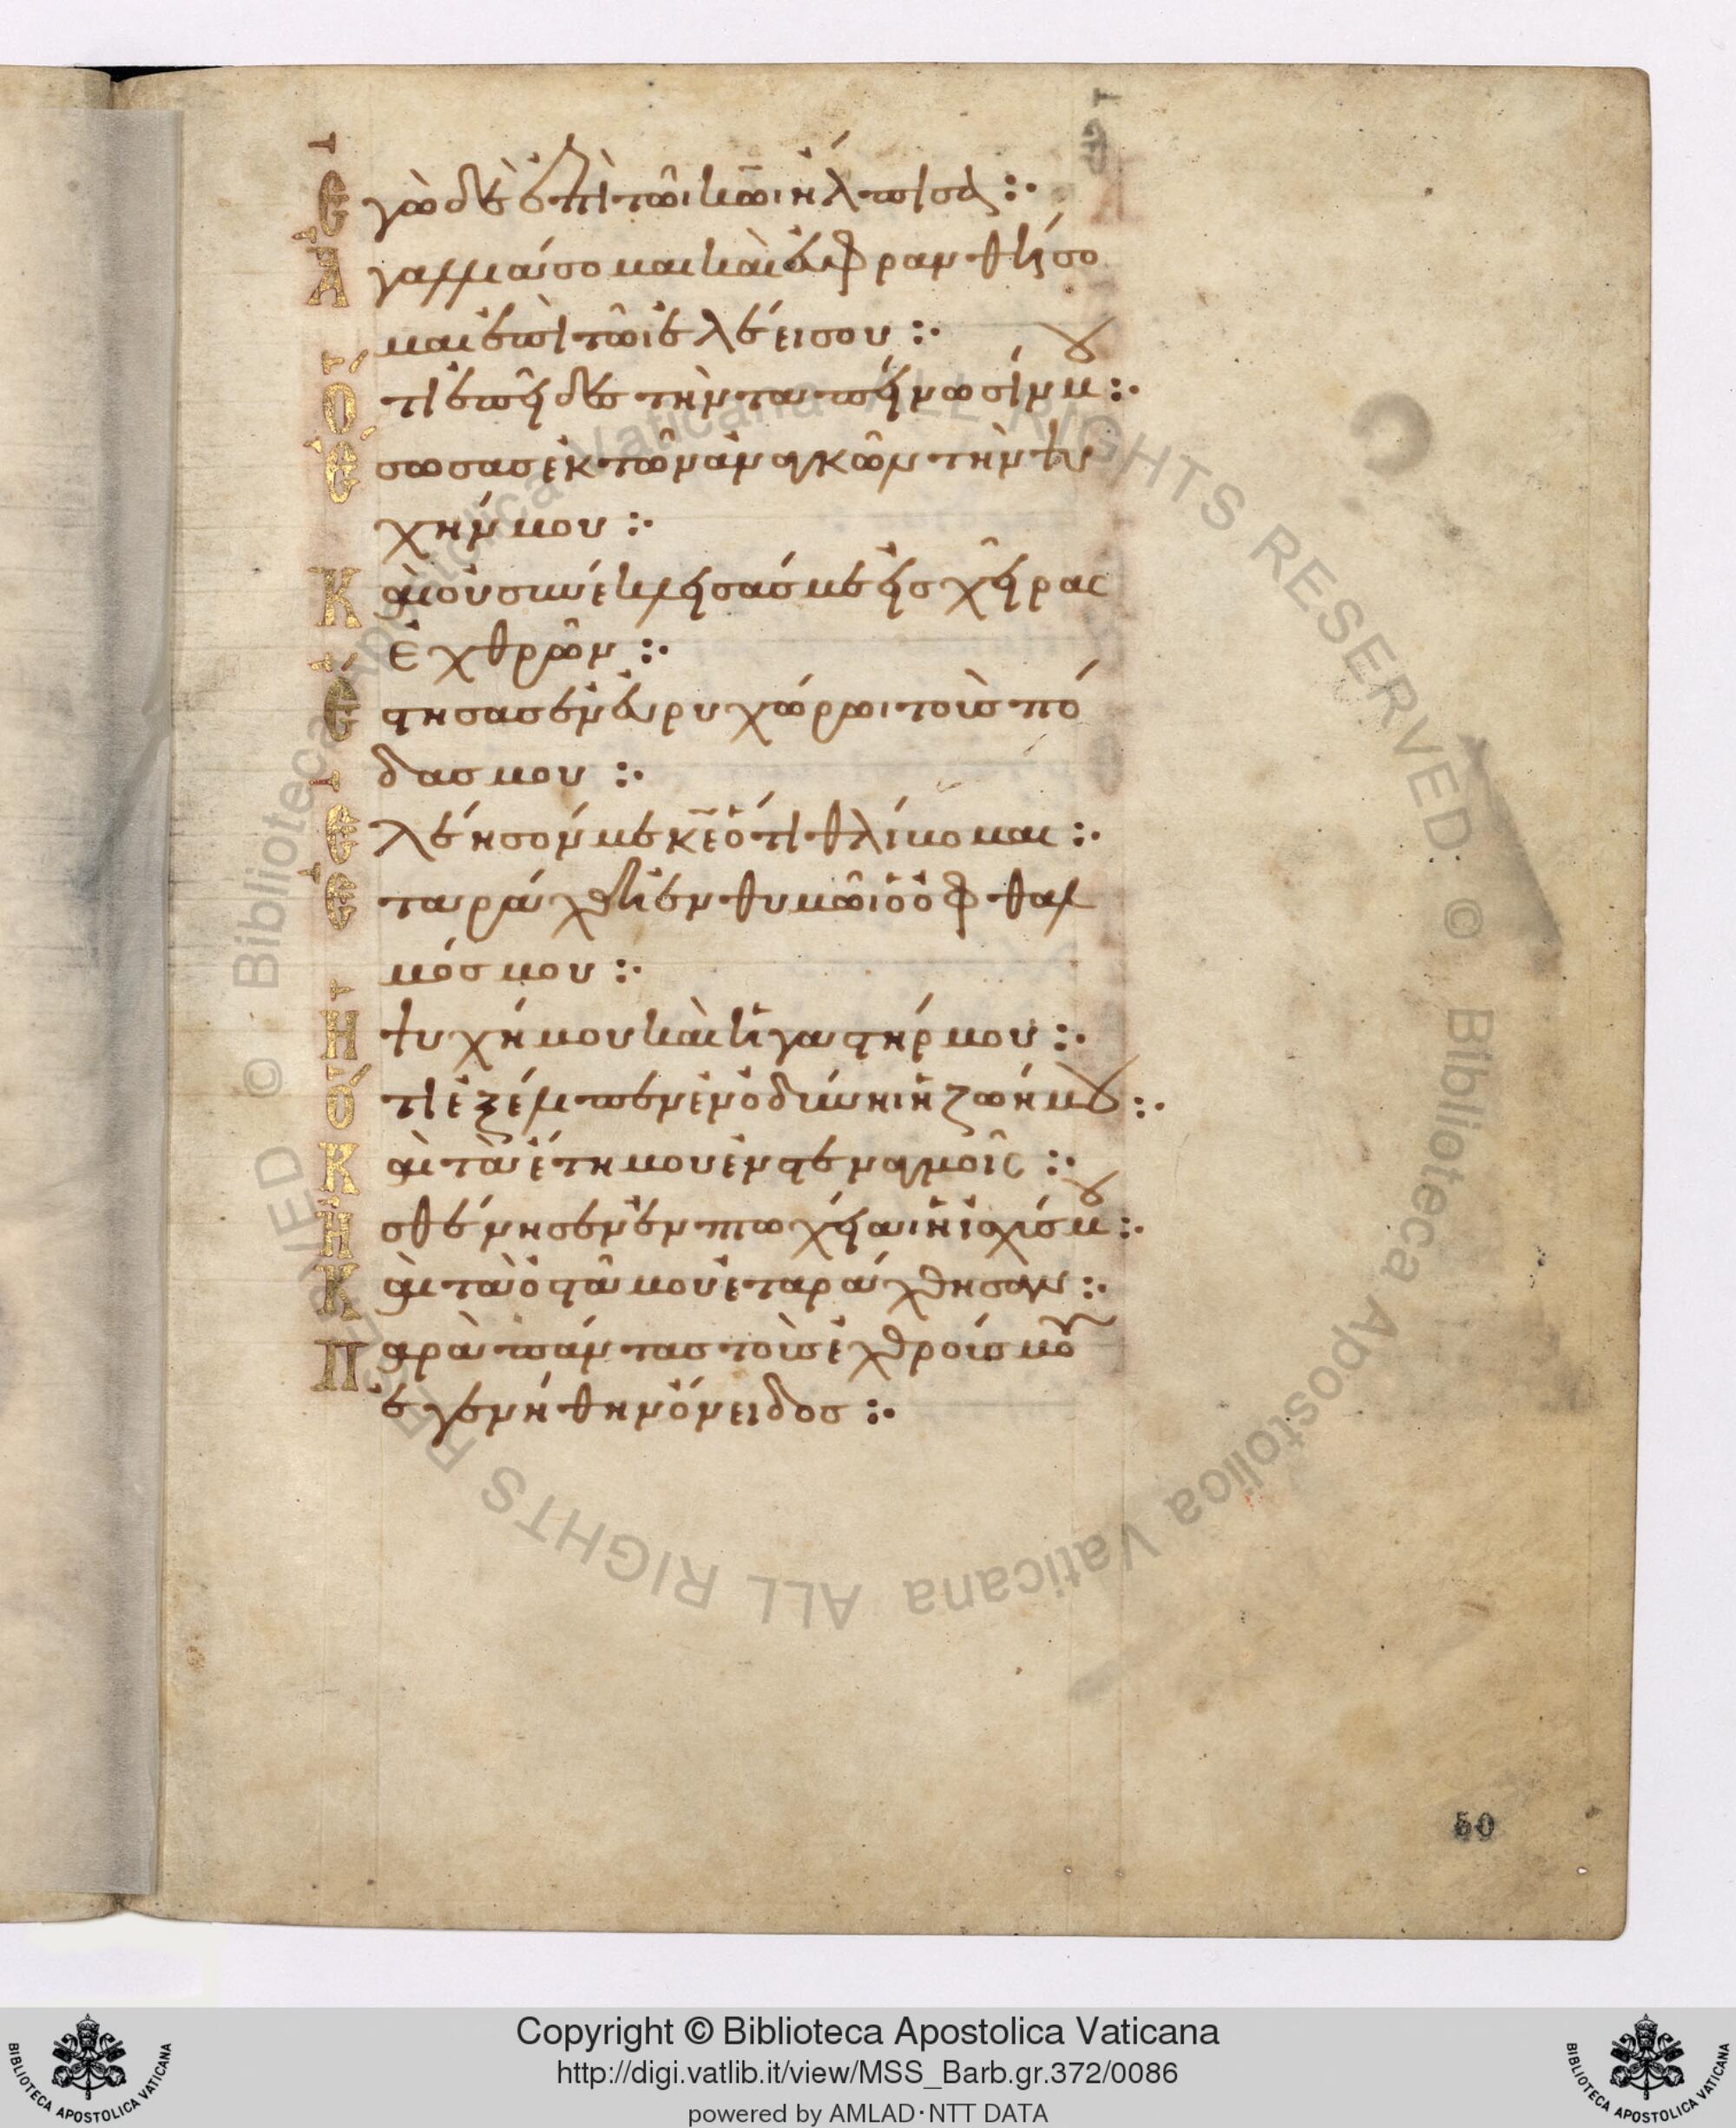 Ἐγὼ δὲ ἐπὶ τῶι κω̅ι ἤλπισα :·
Ἀγαλλιάσομαι καὶ εὐφρανθήσο
μαι ἐπὶ τῶι ἐλέει σου :·
Ὅτι ἐπεῖδες τὴν ταπείνωσίν μου :·
Ἔσωσας ἐκ τῶν ἀναγκῶν τὴν ψυ
χήν μου :·
Καὶ οὐ συνέκλεισάς με εἰς χεῖρας
ἐχθρῶν :·
Ἔστησας ἐν εὐρυχώρωι τοὺς πό
δας μου :·
Ἐλέησόν με κε̅ ὅτι θλίβομαι :·
Ἐταράχθη ἐν θυμῶι ὁ ὀφθαλ
μός μου :·
Ἡ ψυχή μου καὶ ἡ γαστήρ μου :·
Ὅτι ἐξέλιπεν ἐν ὀδύνηι ἡ ζωή μου :·
Καὶ τὰ ἔτη μου ἐν στεναγμοῖς :·
Ἠσθένησεν ἐν πτωχείαι ἡ ἰσχύς μου :·
Καὶ τὰ ὀστᾶ μου ἐταράχθησαν :·
Παρὰ πάντας τοὺς ἐχθρούς μου
ἐγενήθην ὄνειδος :·
50
© Biblioteca Apostolica Vaticana ALL RIGHTS RESERVED © Biblioteca Apostolica Vaticana ALL RIGHTS RESERVED
Copyright © Biblioteca Apostolica Vaticana
http://digi.vatlib.it/view/MSS_Barb.gr.372/0086
powered by AMLAD·NTT DATA
BIBLIOTECA APOSTOLICA VATICANA
BIBLIOTECA APOSTOLICA VATICANA